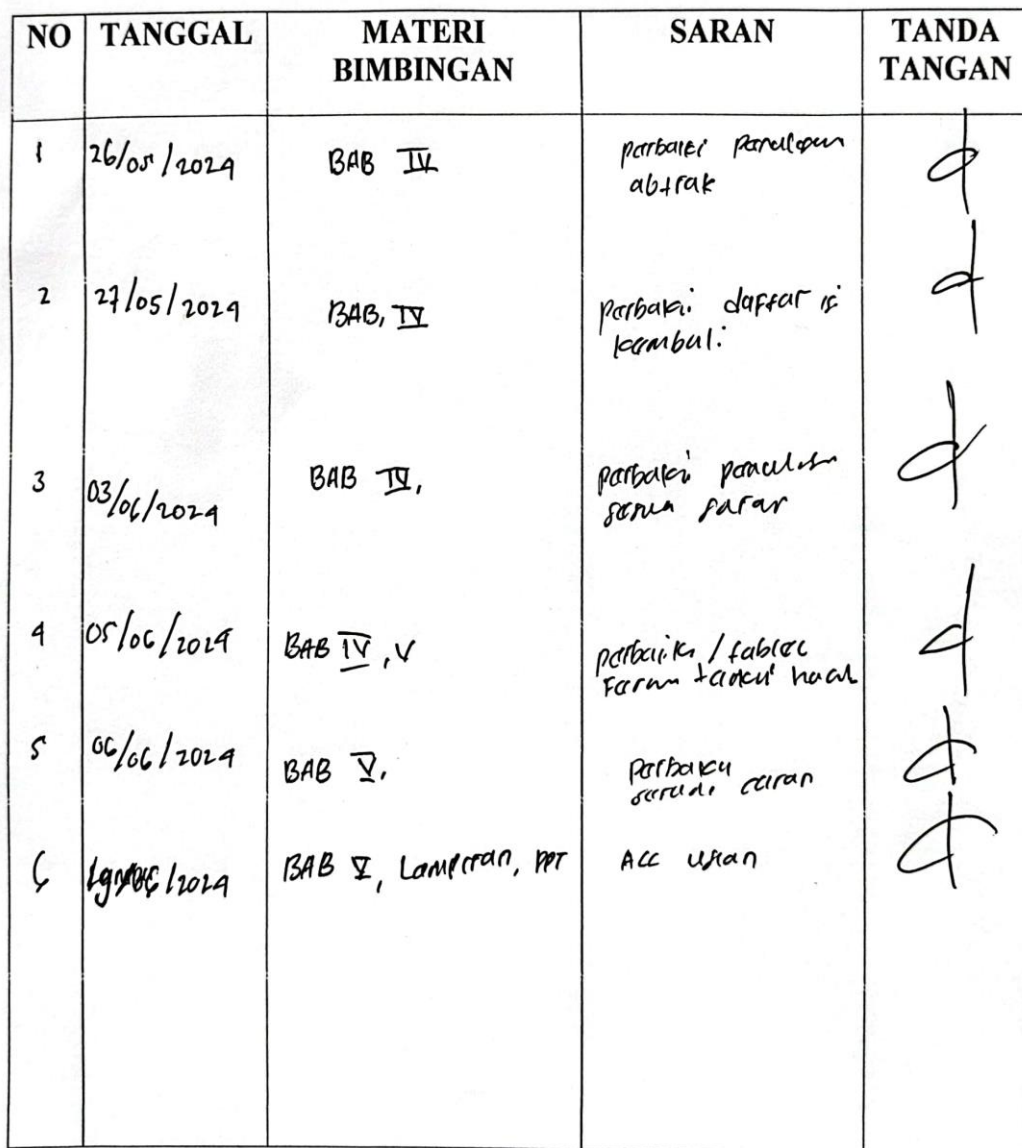 NO TANGGAL MATERI BIMBINGAN SARAN TANDA TANGAN
1 26/05/2024 BAB IV perbaiki penulisan
abtrak
2 27/05/2024 BAB, IV perbaiki daftar isi
kembali
3 03/06/2024 BAB IV, perbaiki penulisan
saran
4 05/06/2024 BAB IV, V
5 06/06/2024 BAB V. perbaiki
saran
6 /2024 BAB V, Lampiran, PPT ACC ujian